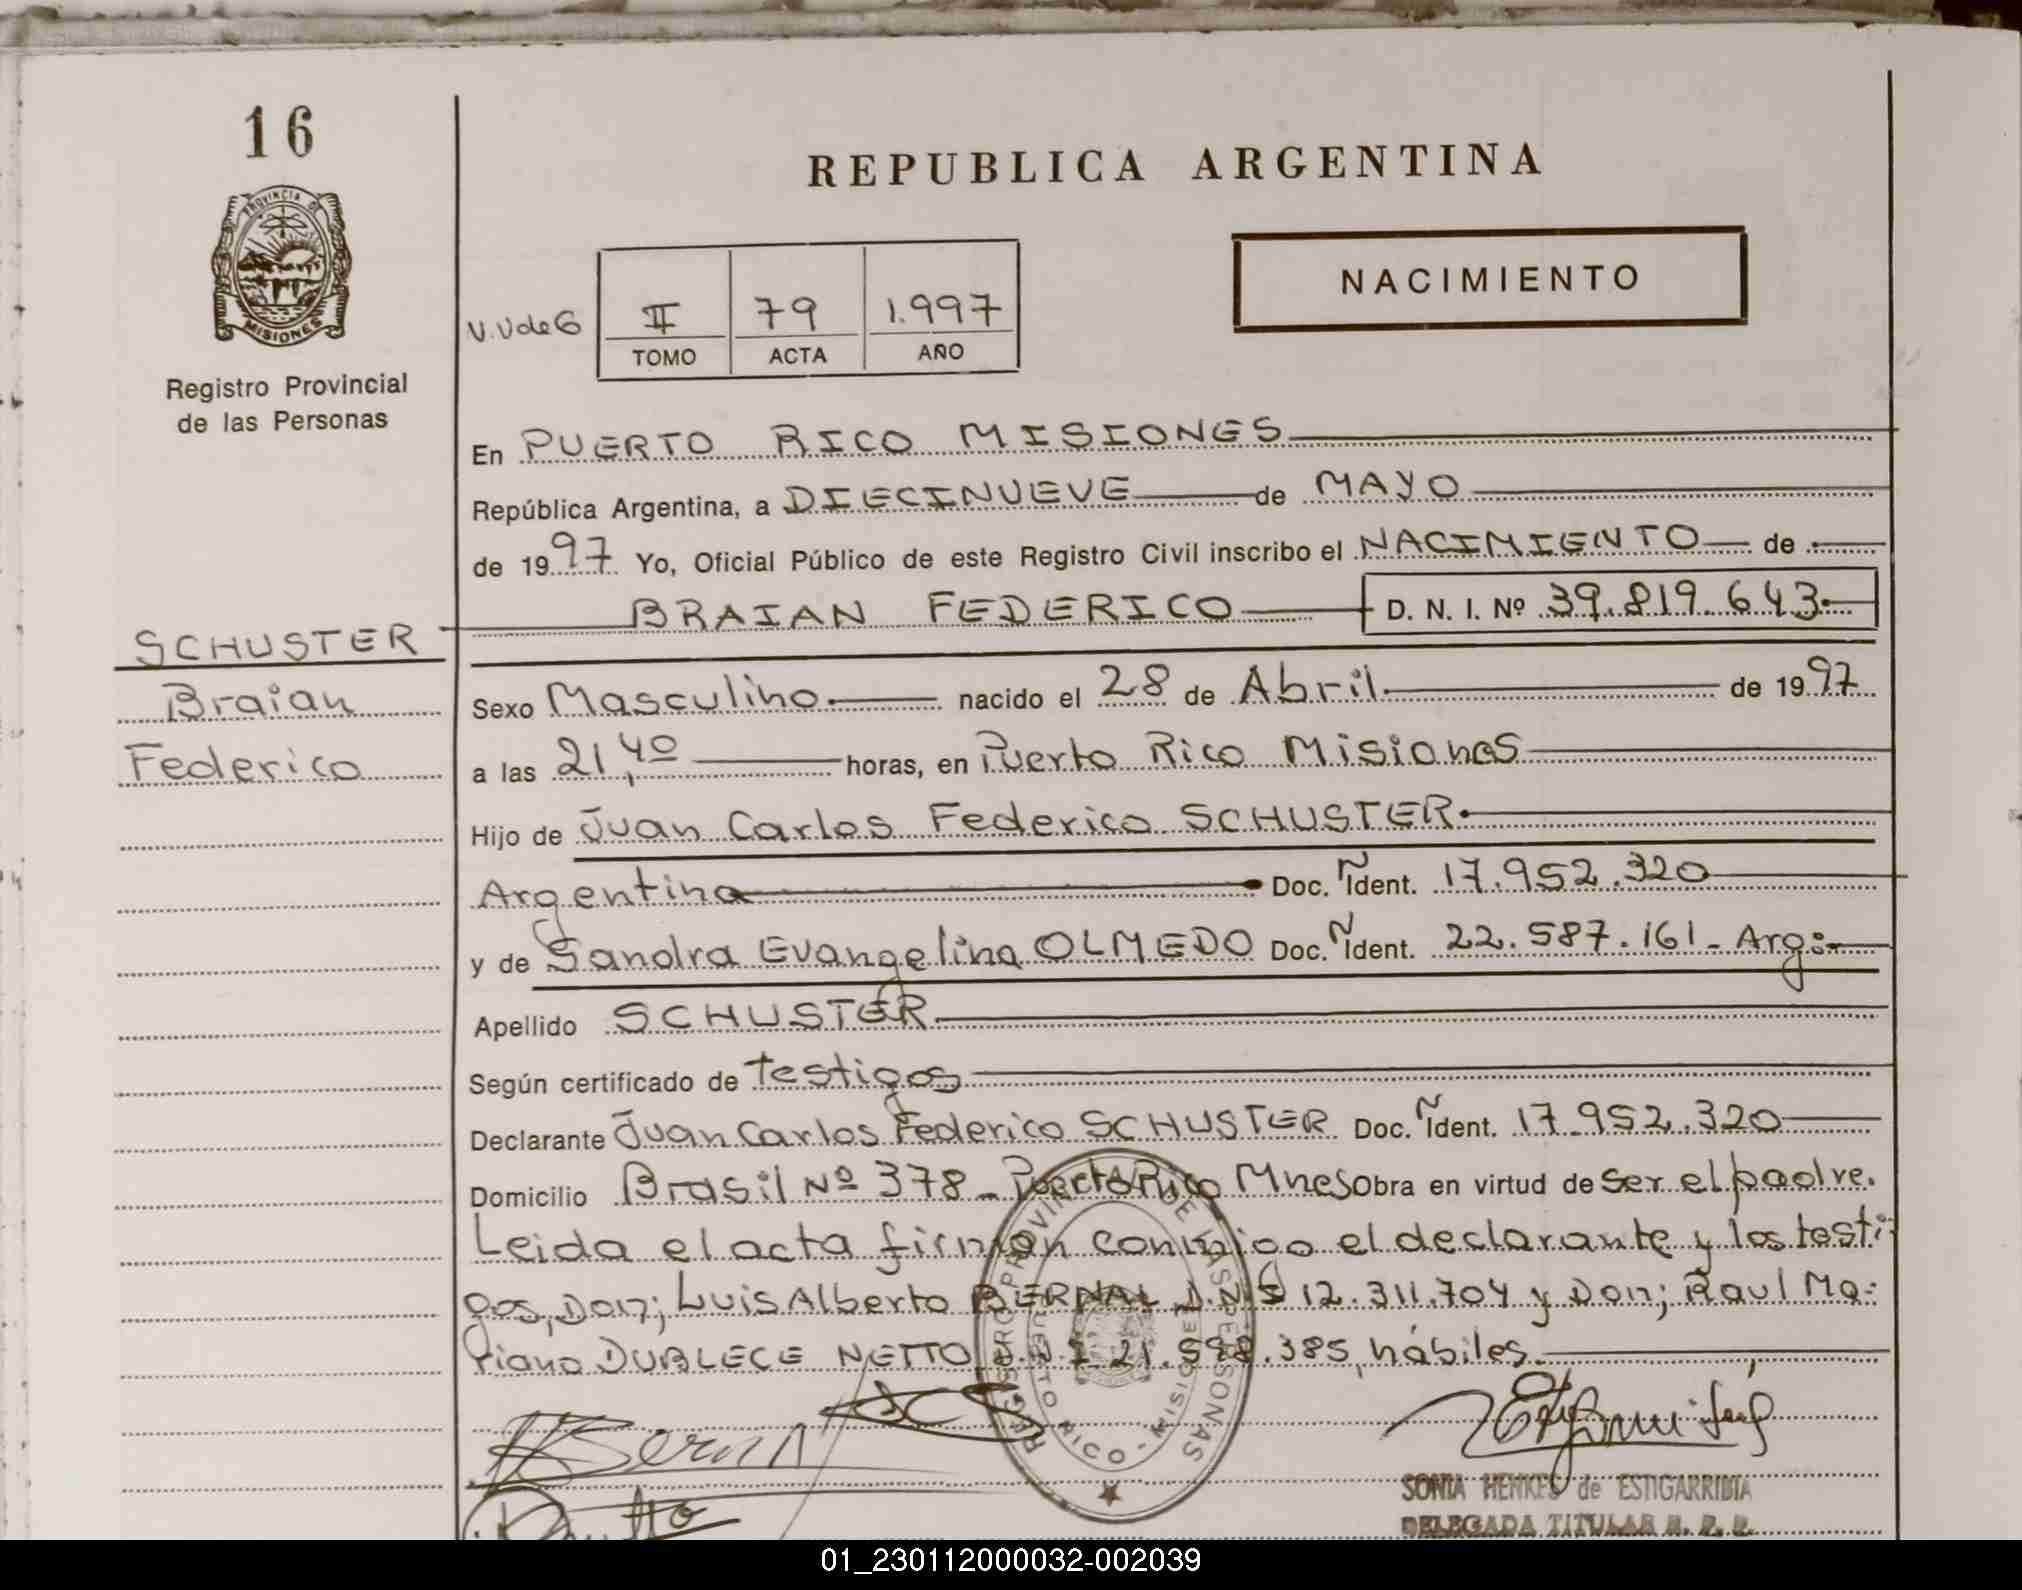 16
REPUBLICA ARGENTINA
PROVINCIA DE
MISIONES
NACIMIENTO
V.Vde6
II 79 1.997
TOMO ACTA AÑO
Registro Provincial
de las Personas
En PUERTO RICO MISIONES
República Argentina, a DIECINUEVE de MAYO
de 1997 Yo, Oficial Público de este Registro Civil inscribo el NACIMIENTO de
BRAIAN FEDERICO D. N. I. Nº 39.819.643
SCHUSTER
Braian
Federico
Sexo Masculino nacido el 28 de Abril de 1997
a las 21,40 horas, en Puerto Rico Misiones
Hijo de Juan Carlos Federico SCHUSTER
Argentina Doc. Ident. 17.952.320
y de Sandra Evangelina OLMEDO Doc. Ident. 22.587.161 - Arg:
Apellido SCHUSTER
Según certificado de testigos
Declarante Juan Carlos Federico SCHUSTER Doc. Ident. 17.952.320
Domicilio Brasil Nº 378 - Puerto Rico Mnes Obra en virtud de ser el padre.
Leida el acta firman conmigo el declarante y los testi-
gos, Don; Luis Alberto BERNAL D.N.I 12.311.704 y Don; Raul Ma-
riano DUBLECE NETTO D.N.I 21.598.385, hábiles.
REGISTRO PROVINCIAL DE LAS PERSONAS
PUERTO RICO - MISIONES
SONIA HENKES de ESTIGARRIBIA
DELEGADA TITULAR R. P. P.
01_230112000032-002039